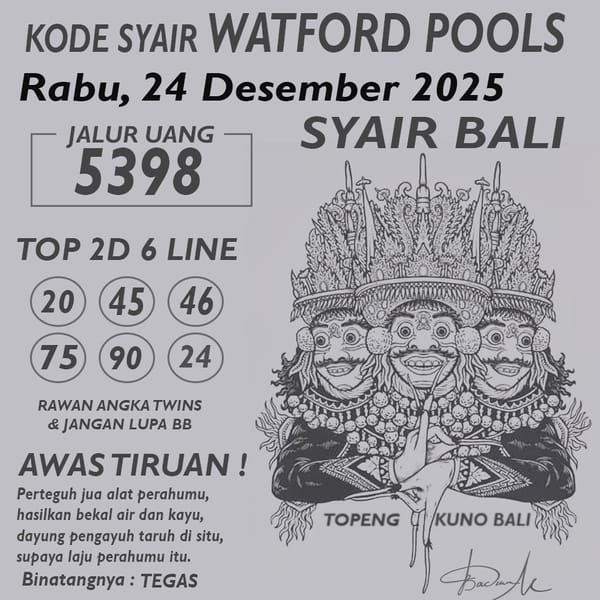 KODE SYAIR WATFORD POOLS
Rabu, 24 Desember 2025
JALUR UANG
5398
SYAIR BALI
TOP 2D 6 LINE
20 45 46
75 90 24
RAWAN ANGKA TWINS
& JANGAN LUPA BB
AWAS TIRUAN !
Perteguh jua alat perahumu,
hasilkan bekal air dan kayu,
dayung pengayuh taruh di situ,
supaya laju perahumu itu.
Binatangnya : TEGAS
TOPENG KUNO BALI